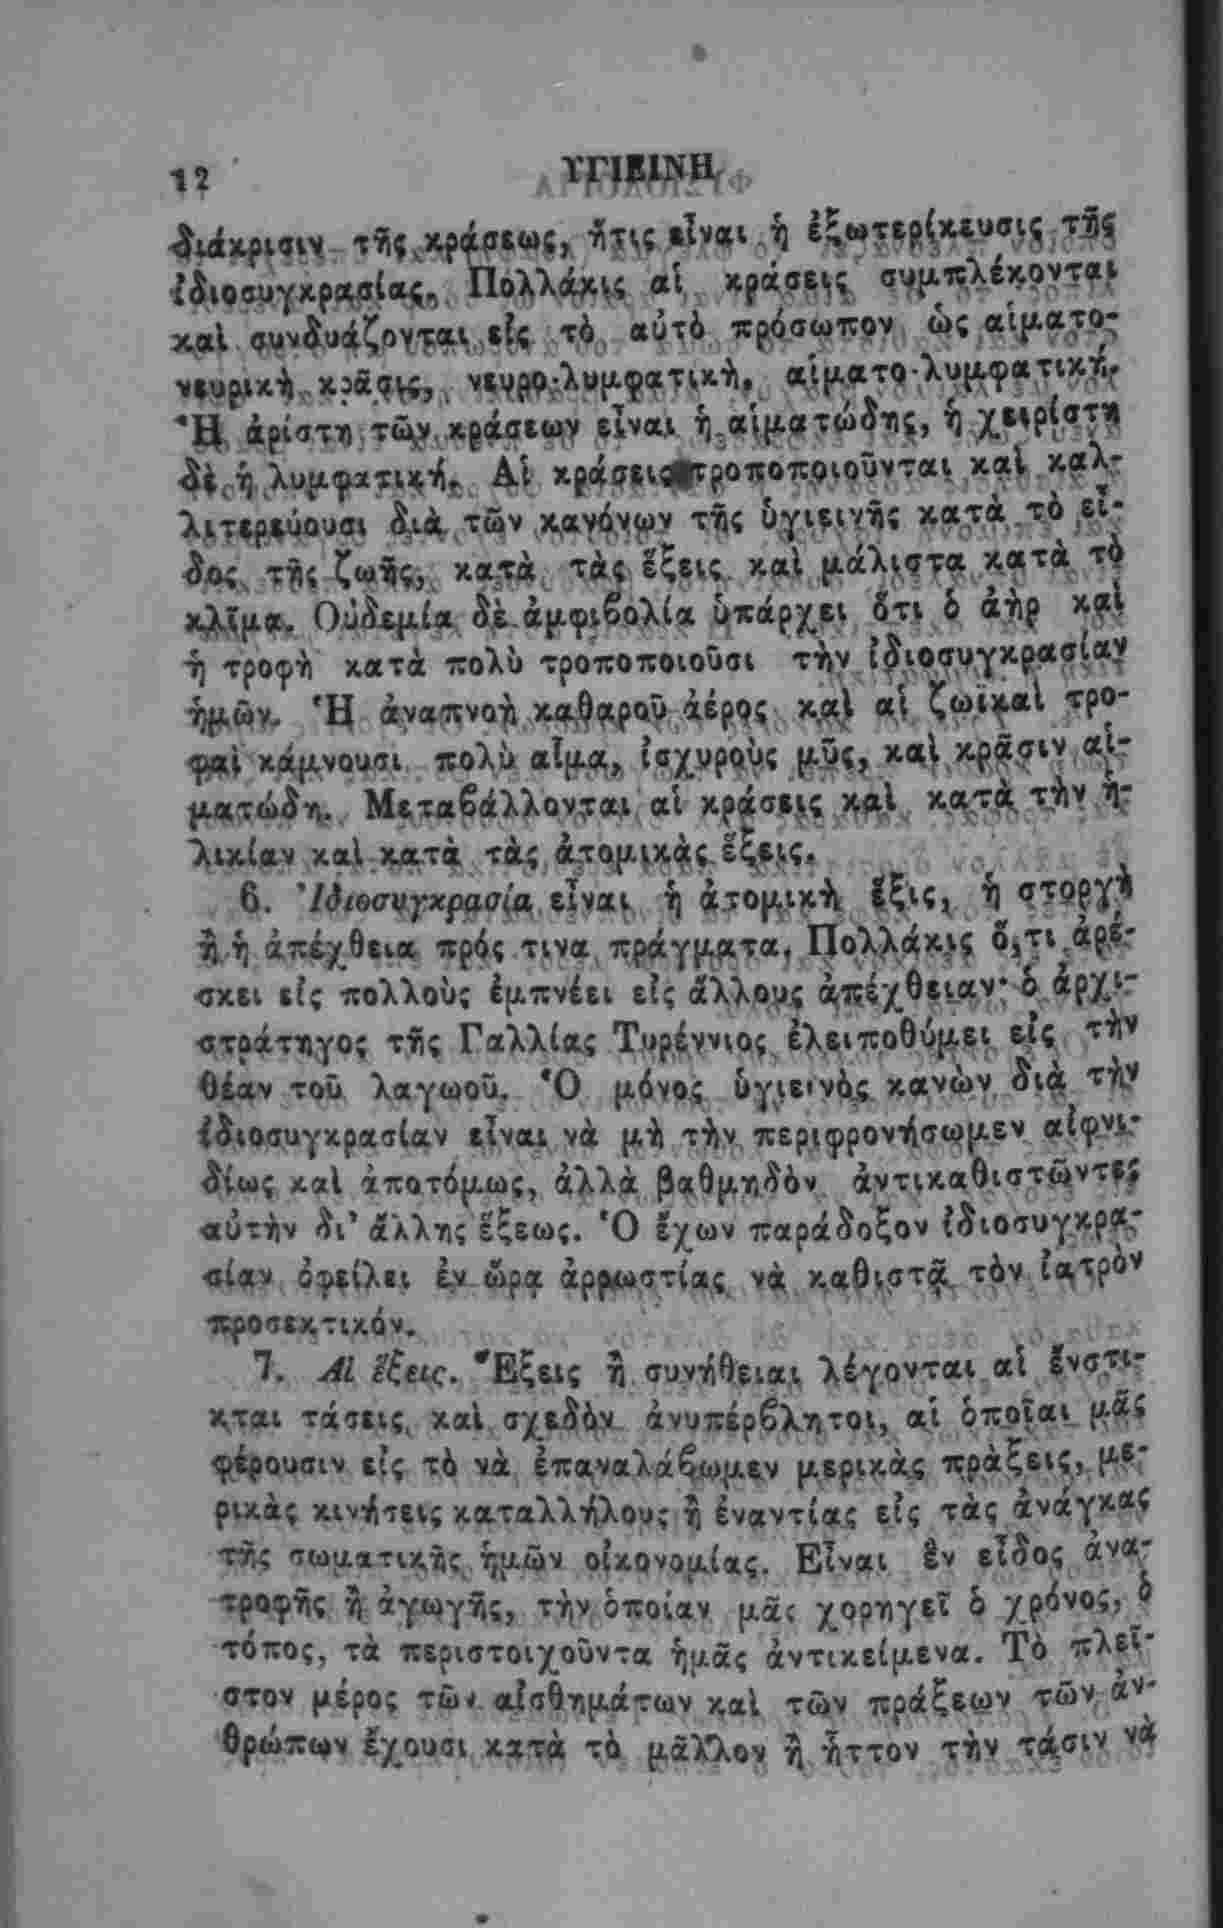 12
ΥΓΙΕΙΝΗ
διάκρισιν τῆς κράσεως, ἥτις εἶναι ἡ ἐξωτερίκευσις τῆς
ἰδιοσυγκρασίας. Πολλάκις αἱ κράσεις συμπλέκονται
καὶ συνδυάζονται εἰς τὸ αὐτὸ πρόσωπον ὡς αἱματο-
νευρικὴ κρᾶσις, νευρο-λυμφατικὴ, αἱματο-λυμφατική.
Ἡ ἀρίστη τῶν κράσεων εἶναι ἡ αἱματώδης, ἡ χειρίστη
δὲ ἡ λυμφατική. Αἱ κράσεις τροποποιοῦνται καὶ καλ-
λιτερεύουσι διὰ τῶν κανόνων τῆς ὑγιεινῆς κατὰ τὸ εἶ-
δος τῆς ζωῆς, κατὰ τὰς ἕξεις καὶ μάλιστα κατὰ τὸ
κλῖμα. Οὐδεμία δὲ ἀμφιβολία ὑπάρχει ὅτι ὁ ἀὴρ καὶ
ἡ τροφὴ κατὰ πολὺ τροποποιοῦσι τὴν ἰδιοσυγκρασίαν
ἡμῶν. Ἡ ἀναπνοὴ καθαροῦ ἀέρος καὶ αἱ ζωϊκαὶ τρο-
φαὶ κάμνουσι πολὺ αἷμα, ἰσχυροὺς μῦς, καὶ κρᾶσιν αἱ-
ματώδη. Μεταβάλλονται αἱ κράσεις καὶ κατὰ τὴν ἡ-
λικίαν καὶ κατὰ τὰς ἀτομικὰς ἕξεις.
6. Ἰδιοσυγκρασία εἶναι ἡ ἀτομικὴ ἕξις, ἡ στοργὴ
ἢ ἡ ἀπέχθεια πρός τινα πράγματα. Πολλάκις ὅ,τι ἀρέ-
σκει εἰς πολλοὺς ἐμπνέει εἰς ἄλλους ἀπέχθειαν· ὁ ἀρχι-
στράτηγος τῆς Γαλλίας Τυρέννιος ἐλειποθύμει εἰς τὴν
θέαν τοῦ λαγωοῦ. Ὁ μόνος ὑγιεινὸς κανὼν διὰ τὴν
ἰδιοσυγκρασίαν εἶναι νὰ μὴ τὴν περιφρονήσωμεν αἰφνι-
δίως καὶ ἀποτόμως, ἀλλὰ βαθμηδὸν ἀντικαθιστῶντες
αὐτὴν δι' ἄλλης ἕξεως. Ὁ ἔχων παράδοξον ἰδιοσυγκρα-
σίαν ὀφείλει ἐν ὥρα ἀρρωστίας νὰ καθιστᾷ τὸν ἰατρὸν
προσεκτικόν.
7. Αἱ ἕξεις. Ἕξεις ἢ συνήθειαι λέγονται αἱ ἔνστι-
κται τάσεις καὶ σχεδὸν ἀνυπέρβλητοι, αἱ ὁποῖαι μᾶς
φέρουσιν εἰς τὸ νὰ ἐπαναλάβωμεν μερικὰς πράξεις, με-
ρικὰς κινήσεις καταλλήλους ἢ ἐναντίας εἰς τὰς ἀνάγκας
τῆς σωματικῆς ἡμῶν οἰκονομίας. Εἶναι ἓν εἶδος ἀνα-
τροφῆς ἢ ἀγωγῆς, τὴν ὁποίαν μᾶς χορηγεῖ ὁ χρόνος, ὁ
τόπος, τὰ περιστοιχοῦντα ἡμᾶς ἀντικείμενα. Τὸ πλεῖ-
στον μέρος τῶν αἰσθημάτων καὶ τῶν πράξεων τῶν ἀν-
θρώπων ἔχουσι κατὰ τὸ μᾶλλον ἢ ἧττον τὴν τάσιν νὰ